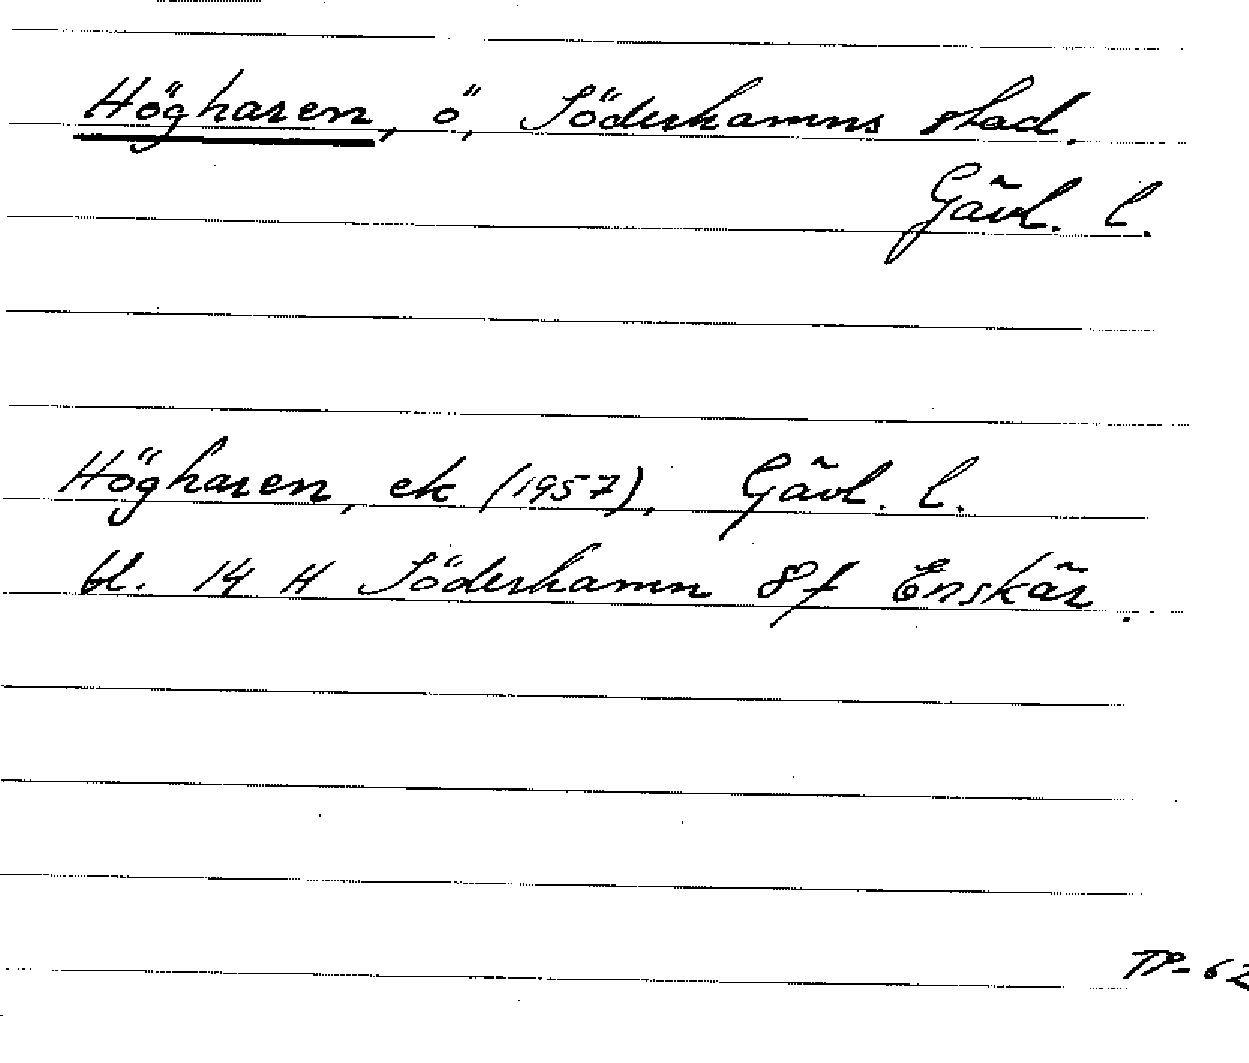 Högharen, ö, Söderhamns stad.
Gävl. l.
Högharen, ek (1957), Gävl. l.
bl. 14 H Söderhamn 8f Enskär.
TP-62